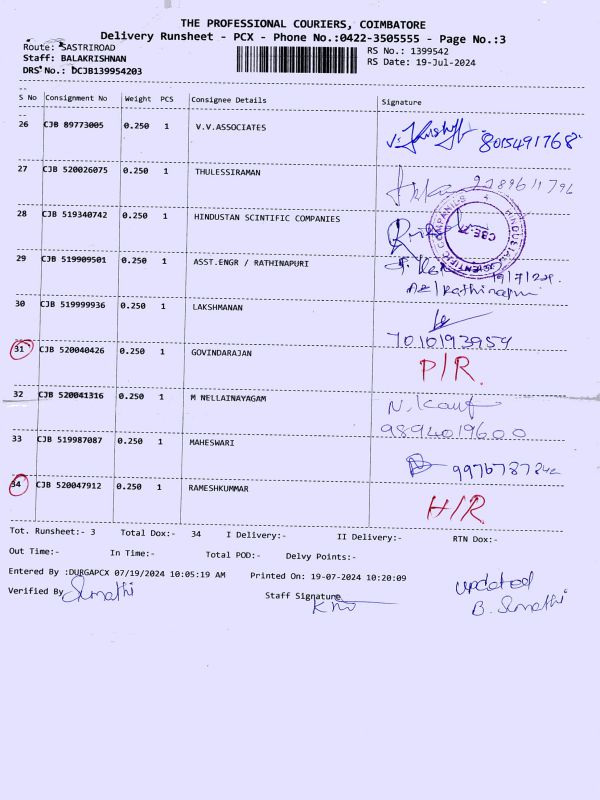 THE PROFESSIONAL COURIERS, COIMBATORE
Delivery Runsheet - PCX - Phone No.:0422-3505555 - Page No.:3
Route: SASTRIROAD
RS No.: 1399542
Staff: BALAKRISHNAN
RS Date: 19-Jul-2024
DRS No.: DCJB139954203
S No Consignment No Weight PCS Consignee Details Signature
26 CJB 89773005 0.250 1 V.V.ASSOCIATES 8015491768
27 CJB 520026075 0.250 1 THULESSIRAMAN
28 CJB 519340742 0.250 1 HINDUSTAN SCINTIFIC COMPANIES
29 CJB 519909501 0.250 1 ASST.ENGR / RATHINAPURI 19/7/24
AE/Rathinapuri
30 CJB 519999936 0.250 1 LAKSHMANAN
7010193954
31 CJB 520040426 0.250 1 GOVINDARAJAN P/R.
32 CJB 520041316 0.250 1 M NELLAINAYAGAM
9894019600
33 CJB 519987087 0.250 1 MAHESWARI
34 CJB 520047912 0.250 1 RAMESHKUMMAR H/R.
Tot. Runsheet:- 3 Total Dox:- 34 I Delivery:- II Delivery:- RTN Dox:-
Out Time:- In Time:- Total POD:- Delvy Points:-
Entered By :DURGAPCX 07/19/2024 10:05:19 AM Printed On: 19-07-2024 10:20:09
Verified By Sumathi Staff Signature
updated
B. Sumathi